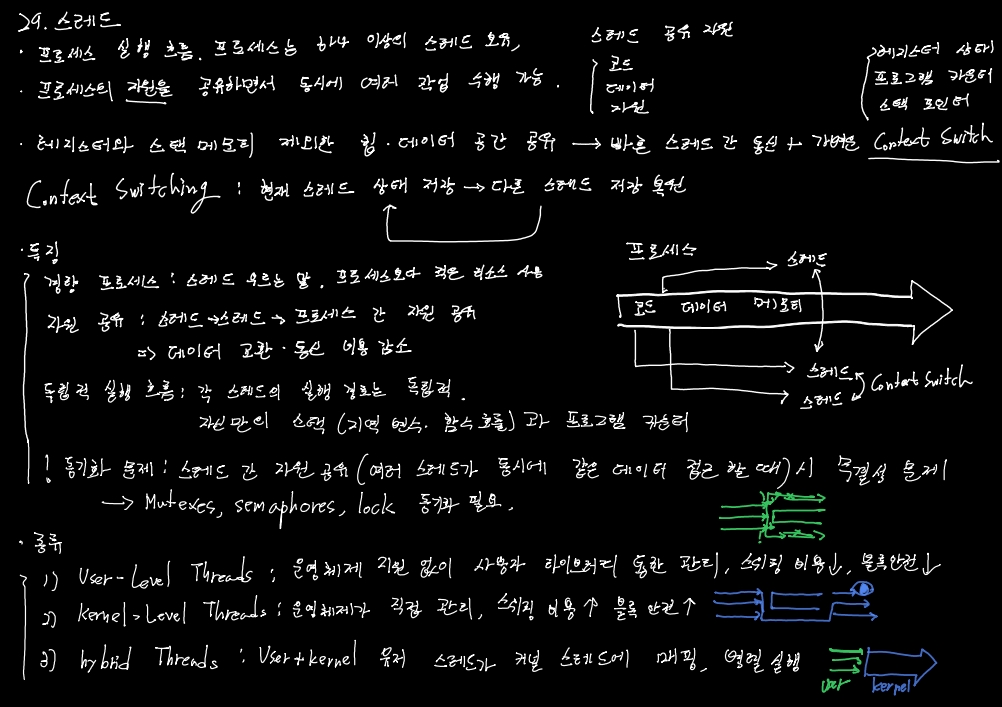 29. 스레드
· 프로세스 실행 흐름. 프로세스는 하나 이상의 스레드 보유,
· 프로세스의 자원을 공유하면서 동시에 여러 작업 수행 가능.
스레드 공유 자원
코드
데이터
자원
레지스터 상태
프로그램 카운터
스택 포인터
· 레지스터와 스택 메모리 제외한 힙·데이터 공간 공유 → 빠른 스레드 간 통신 + 가벼운 Context Switch
Context Switching : 현재 스레드 상태 저장 → 다른 스레드 저장 복원
· 특징
경량 프로세스 : 스레드 부르는 말. 프로세스보다 적은 리소스 사용
자원 공유 : 스레드→스레드→ 프로세스 간 자원 공유
=> 데이터 교환·통신 비용 감소
독립적 실행 흐름 : 각 스레드의 실행 경로는 독립적.
자신만의 스택 (지역 변수·함수 호출) 과 프로그램 카운터
! 동기화 문제 : 스레드 간 자원 공유 (여러 스레드가 동시에 같은 데이터 접근 할 때) 시 무결성 문제
→ Mutexes, semaphores, lock 동기화 필요.
프로세스
스레드
코드 데이터 메모리
스레드
스레드
Context Switch
· 종류
1) User-Level Threads : 운영체제 지원 없이 사용자 라이브러리 통한 관리, 스위칭 비용↓, 블록안전↓
2) Kernel-Level Threads : 운영체제가 직접 관리, 스위칭 비용↑ 블록 안전↑
3) hybrid Threads : User+kernel 유저 스레드가 커널 스레드에 매핑, 병렬 실행
user
kernel